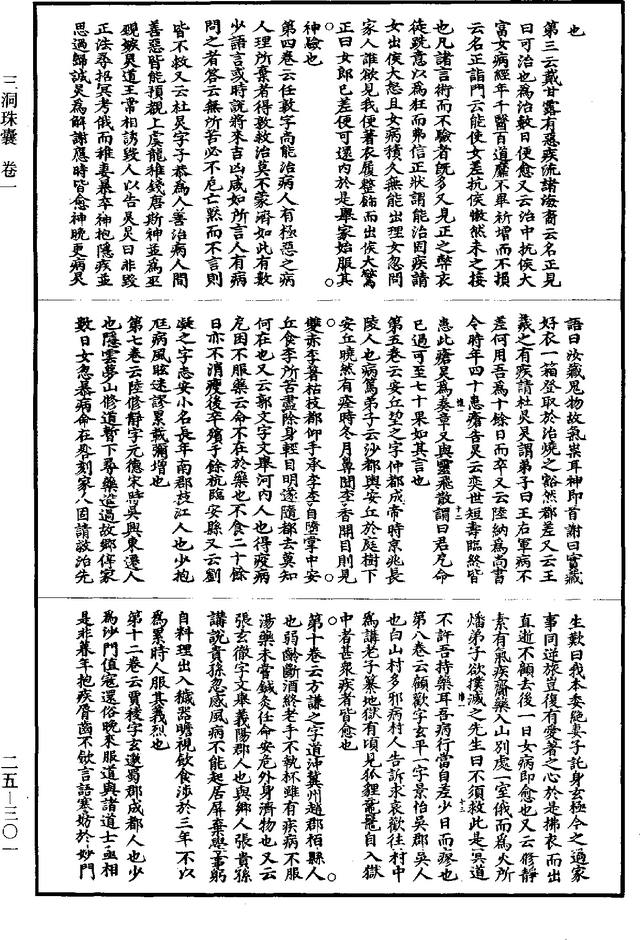 三洞珠囊　卷一
二五—三〇一
也
第三云戴甘露有惡疾流諸海裔云名正見
曰可治也為治數日便愈又云治中抗侯大
富女病經年千醫百道靡不畢祈增而不損
云名正詣門云能使女差抗侯慠然未之接
也凡諸言術而不驗者旣多又見正之弊衣
徒跣意以為狂而弗信正狀謂能治因疾請
女出侯大怒且女病積久無能出理女忽問
家人誰欲見我便著衣履整飾而出侯大驚
正曰女郎已差便可還內於是舉家始服其
神驗也
第四卷云任敦字尚能治病人有極惡之病
人理所棄者得敦救治莫不蒙濟如此有數
少語言或時說將來吉凶咸如所言人有病
問之者答云無所苦必不危亡默而不言則
皆不救又云杜炅字子恭為人善治病人間
善惡皆能預覩上虞龍稚錢唐斯神並為巫
覡嫉炅道王常相誘毀人以告炅炅曰非毀
正法尋招冥考俄而稚妻暴卒神抱隱疾並
思過歸誠炅為解謝應時皆愈神晚更病炅
語曰汝藏鬼物故氣祟耳神即首謝曰實藏
好衣一箱登取於治燒之豁然都差又云王
羲之有疾請杜炅炅謂弟子曰王右軍病不
差何用吾為十餘日而卒又云陸納為尚書
令時年四十患瘡告炅云奕世短壽臨終皆
患此瘡炅為奏章又與靈飛散謂曰君危命
已過可至七十果如其言也
第五卷云安丘望之字仲都成帝時京兆長
陵人也病篤弟子云沙都與安丘於庭樹下
安丘曉然有瘥時冬月鼻聞李香開目則見
雙赤李著枯枝都仰手承李李自墮掌中安
丘食李所苦盡除身輕目明遂隨都去莫知
何在也又云郭文字文舉河內人也得疫病
危困不服藥云命不在於藥也不食二十餘
日亦不消瘦後卒殯于餘杭臨安縣又云劉
凝之字志安小名長年南郡枝江人也少抱
尫病風眩迷謬累載彌增也
第七卷云陸修靜字元德宋時吳興東遷人
也隱雲夢山修道暫下尋藥𨓏過故鄉停家
數日女忽暴病命在晷刻家人固請救治先
生歎曰我本委絕妻子託身玄極今之過家
事同逆旅豈復有愛著之心於是拂衣而出
直逝不顧去後一日女病即愈也又云修靜
素有氣疾齋藥入山別處一室俄而為火所
燔弟子欲撲滅之先生曰不須救此是冥道
不許吾持藥耳吾病行當自差少日而瘳也
第八卷云顧歡字玄平一字景怡吳郡吳人
也白山村多邪病村人告訴求哀歡往村中
為講老子篆地獄有頃見狐狸黿鼉自入獄
中者甚衆疾者皆愈也
第十卷云方謙之字道沖冀州趙郡栢縣人
也弱齡斷酒終老手不執杯雖有疾病不服
湯藥未嘗鍼灸任命安危外身濟物也又云
張玄徹字文舉義陽郡人也與鄉人張貴孫
講說貴孫忽感風病不能起居屏棄興事躬
自料理出入穢器瞻視飲食涉於三年不以
為累時人服其義烈也
第十二卷云賈稜字玄邈蜀郡成都人也少
為沙門值寇還俗晚來服道與諸道士亟相
是非暮年抱疾脣齒不歛言語蹇妨於妙門